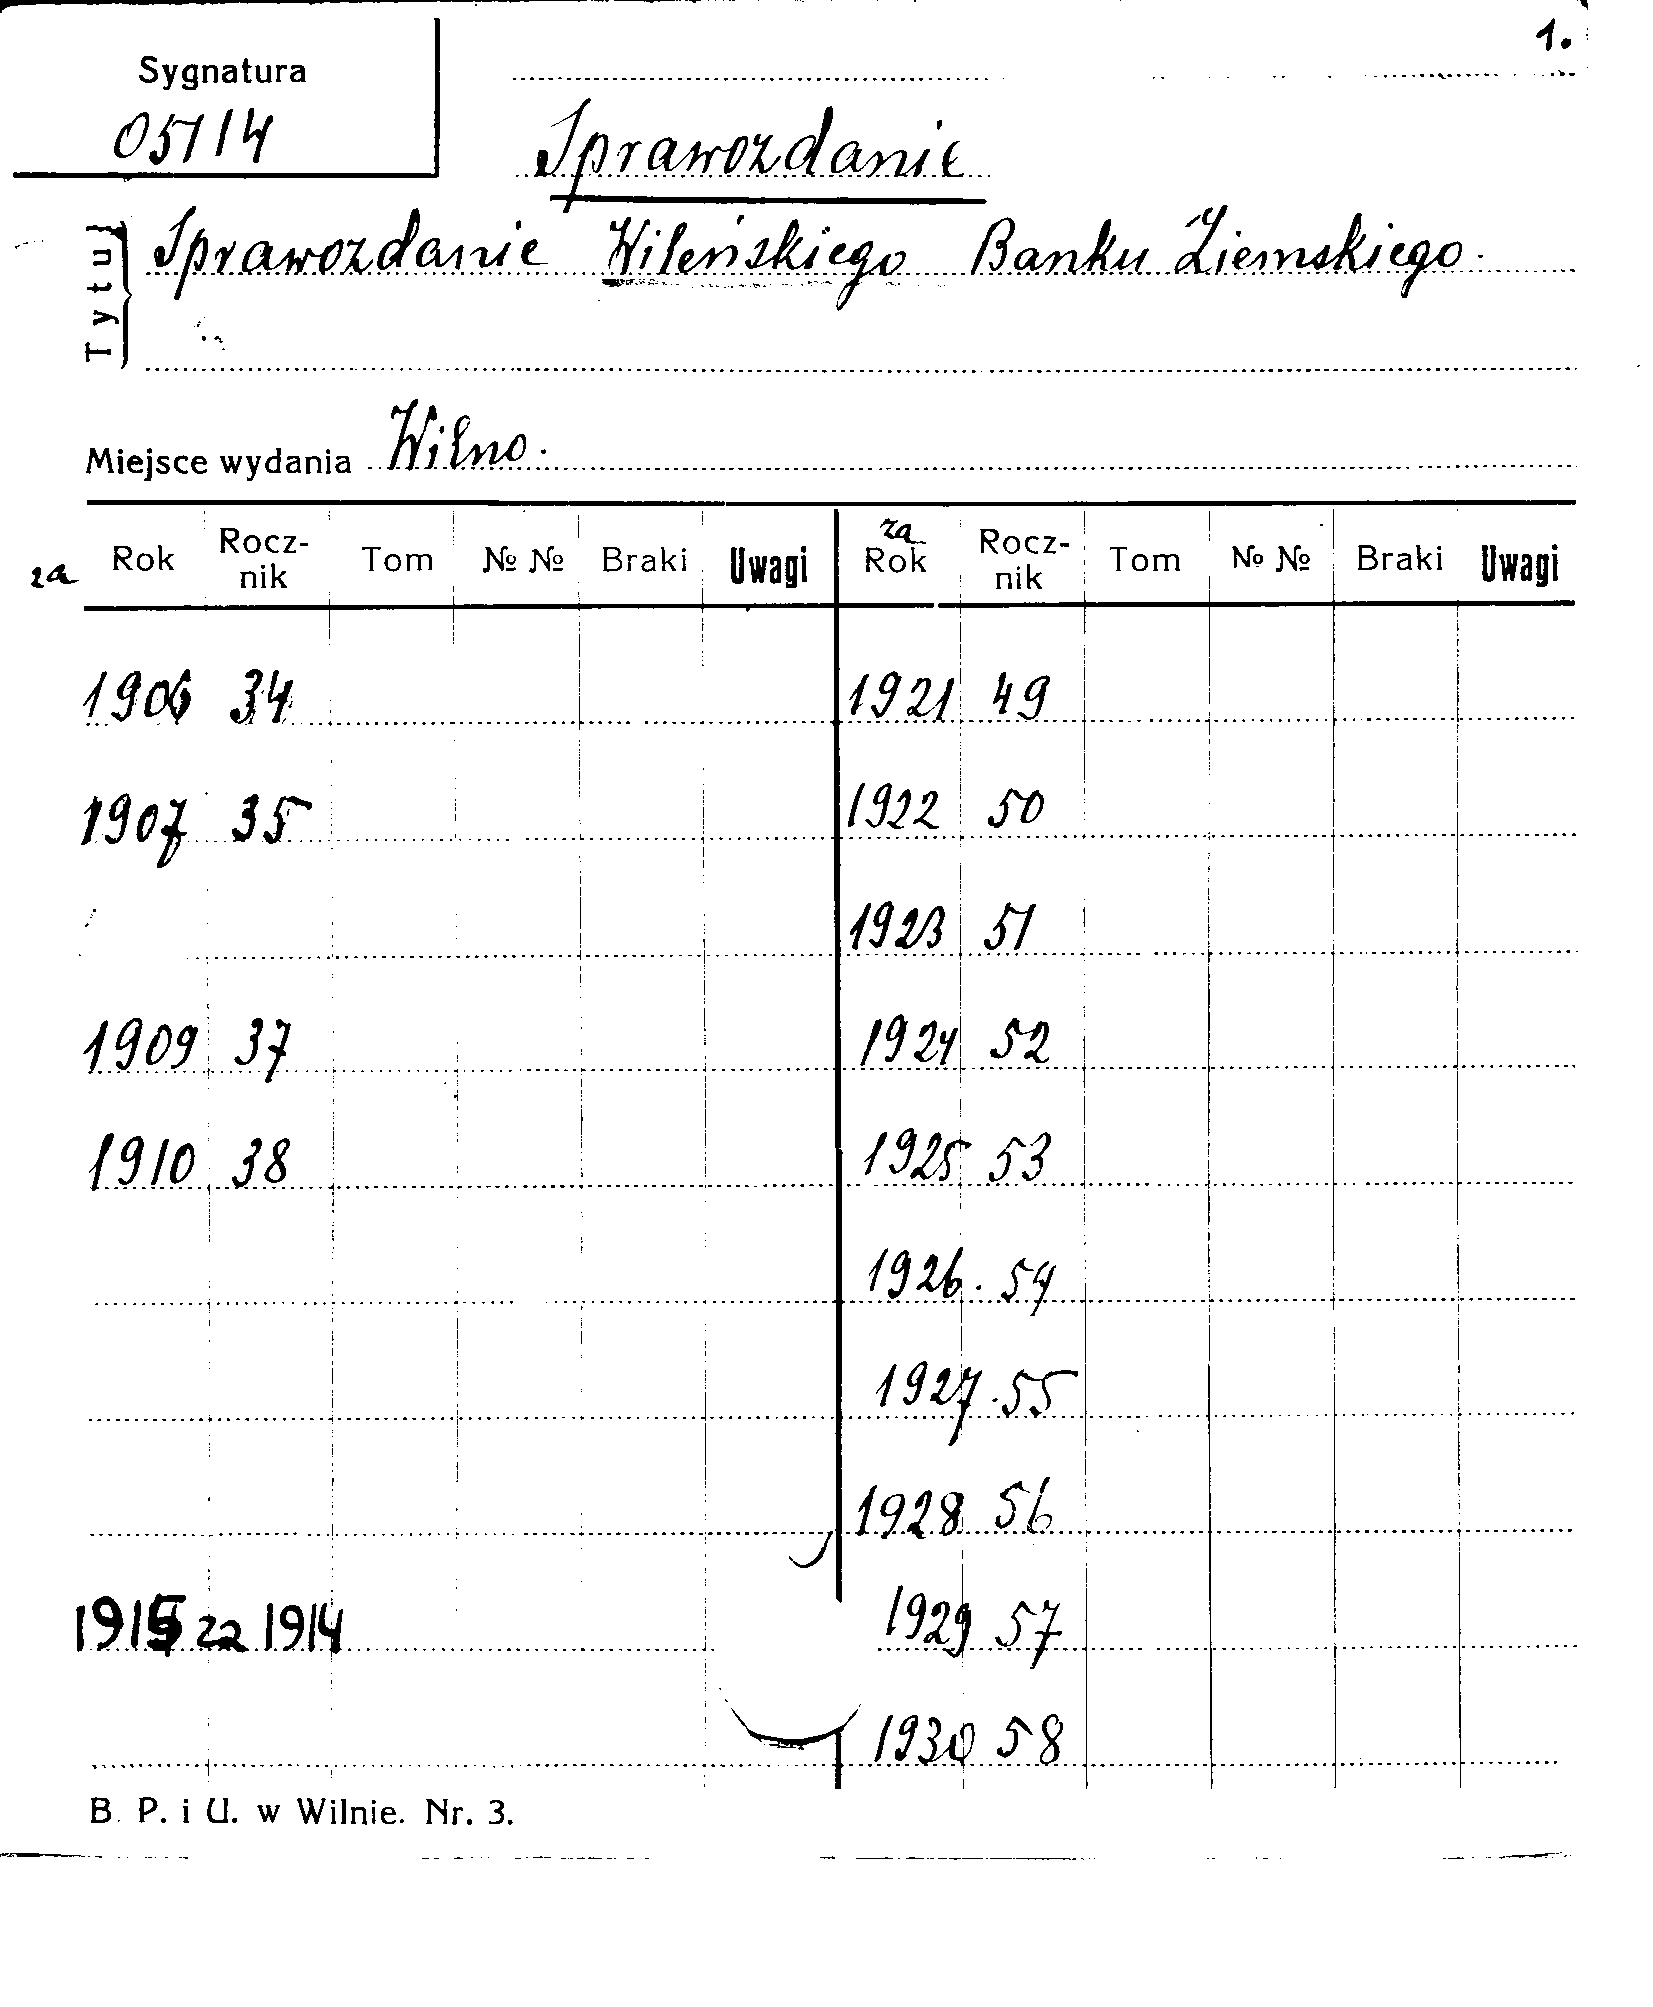 1.
Sygnatura
05114
Sprawozdanie
Tytuł
Sprawozdanie Wileńskiego Banku Ziemskiego.
Miejsce wydania Wilno.
za Rok Rocz-nik Tom № № Braki Uwagi za Rok Rocz-nik Tom № № Braki Uwagi
1906 34 1921 49
1907 35 1922 50
1923 51
1909 37 1924 52
1910 38 1925 53
1926. 54
1927. 55
1928 56
1915 za 1914 1929 57
1930 58
B. P. i U. w Wilnie. Nr. 3.